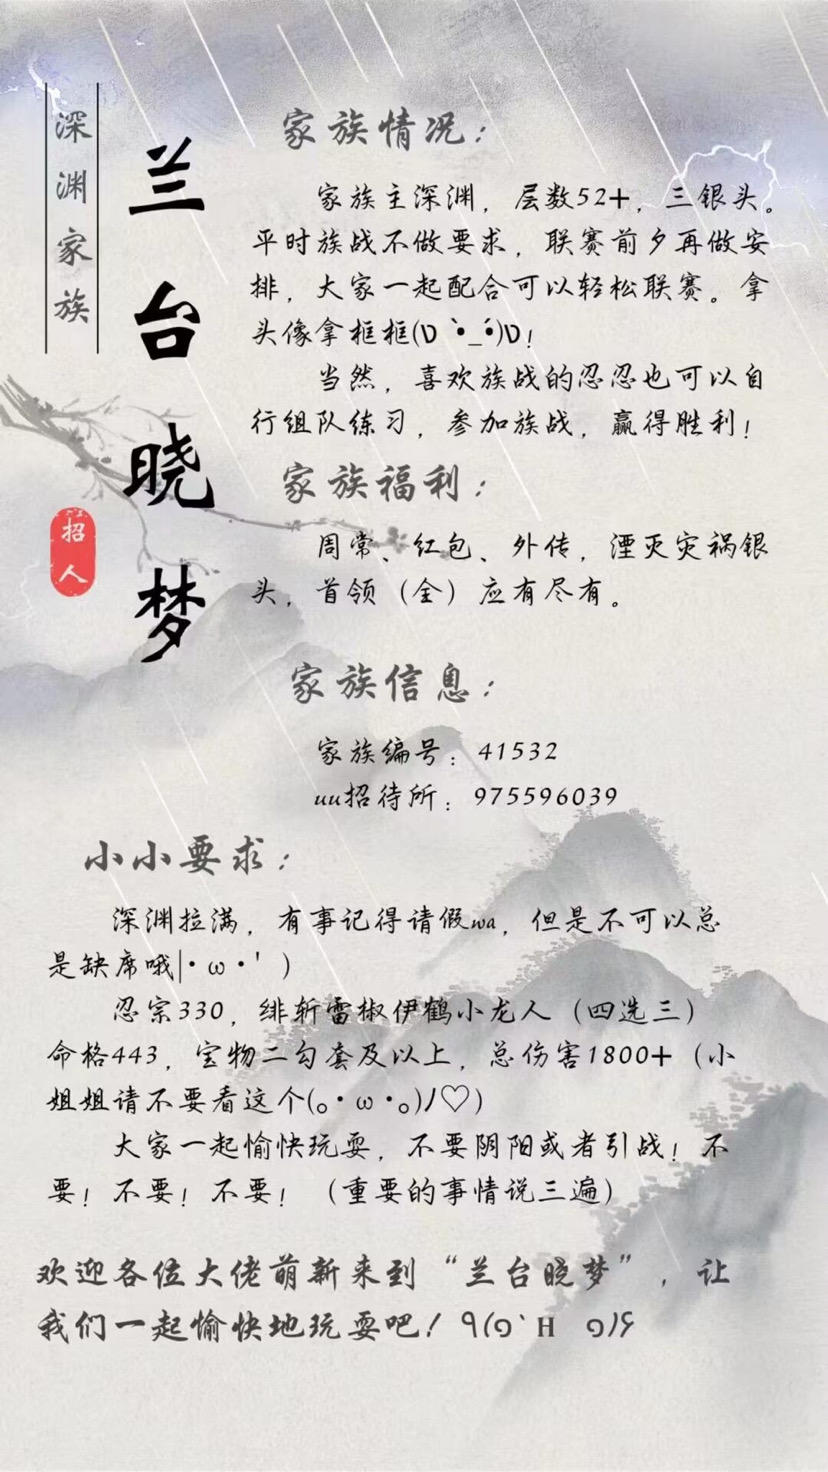 深渊家族
兰台晓梦
招人
家族情况：
家族主深渊，层数52+，三银头。
平时族战不做要求，联赛前夕再做安
排，大家一起配合可以轻松联赛。拿
头像拿框框(ง •̀_•́)ง！
当然，喜欢族战的忍忍也可以自
行组队练习，参加族战，赢得胜利！
家族福利：
周常、红包、外传，湮灭灾祸银
头，首领（全）应有尽有。
家族信息：
家族编号：41532
uu招待所：975596039
小小要求：
深渊拉满，有事记得请假wa，但是不可以总
是缺席哦|・ω・'）
忍宗330，绯斩雷椒伊鹤小龙人（四选三）
命格443，宝物二勾套及以上，总伤害1800+（小
姐姐请不要看这个(｡・ω・｡)ﾉ♡）
大家一起愉快玩耍，不要阴阳或者引战！不
要！不要！不要！（重要的事情说三遍）
欢迎各位大佬萌新来到“兰台晓梦”，让
我们一起愉快地玩耍吧！٩(๑`н ๑)۶